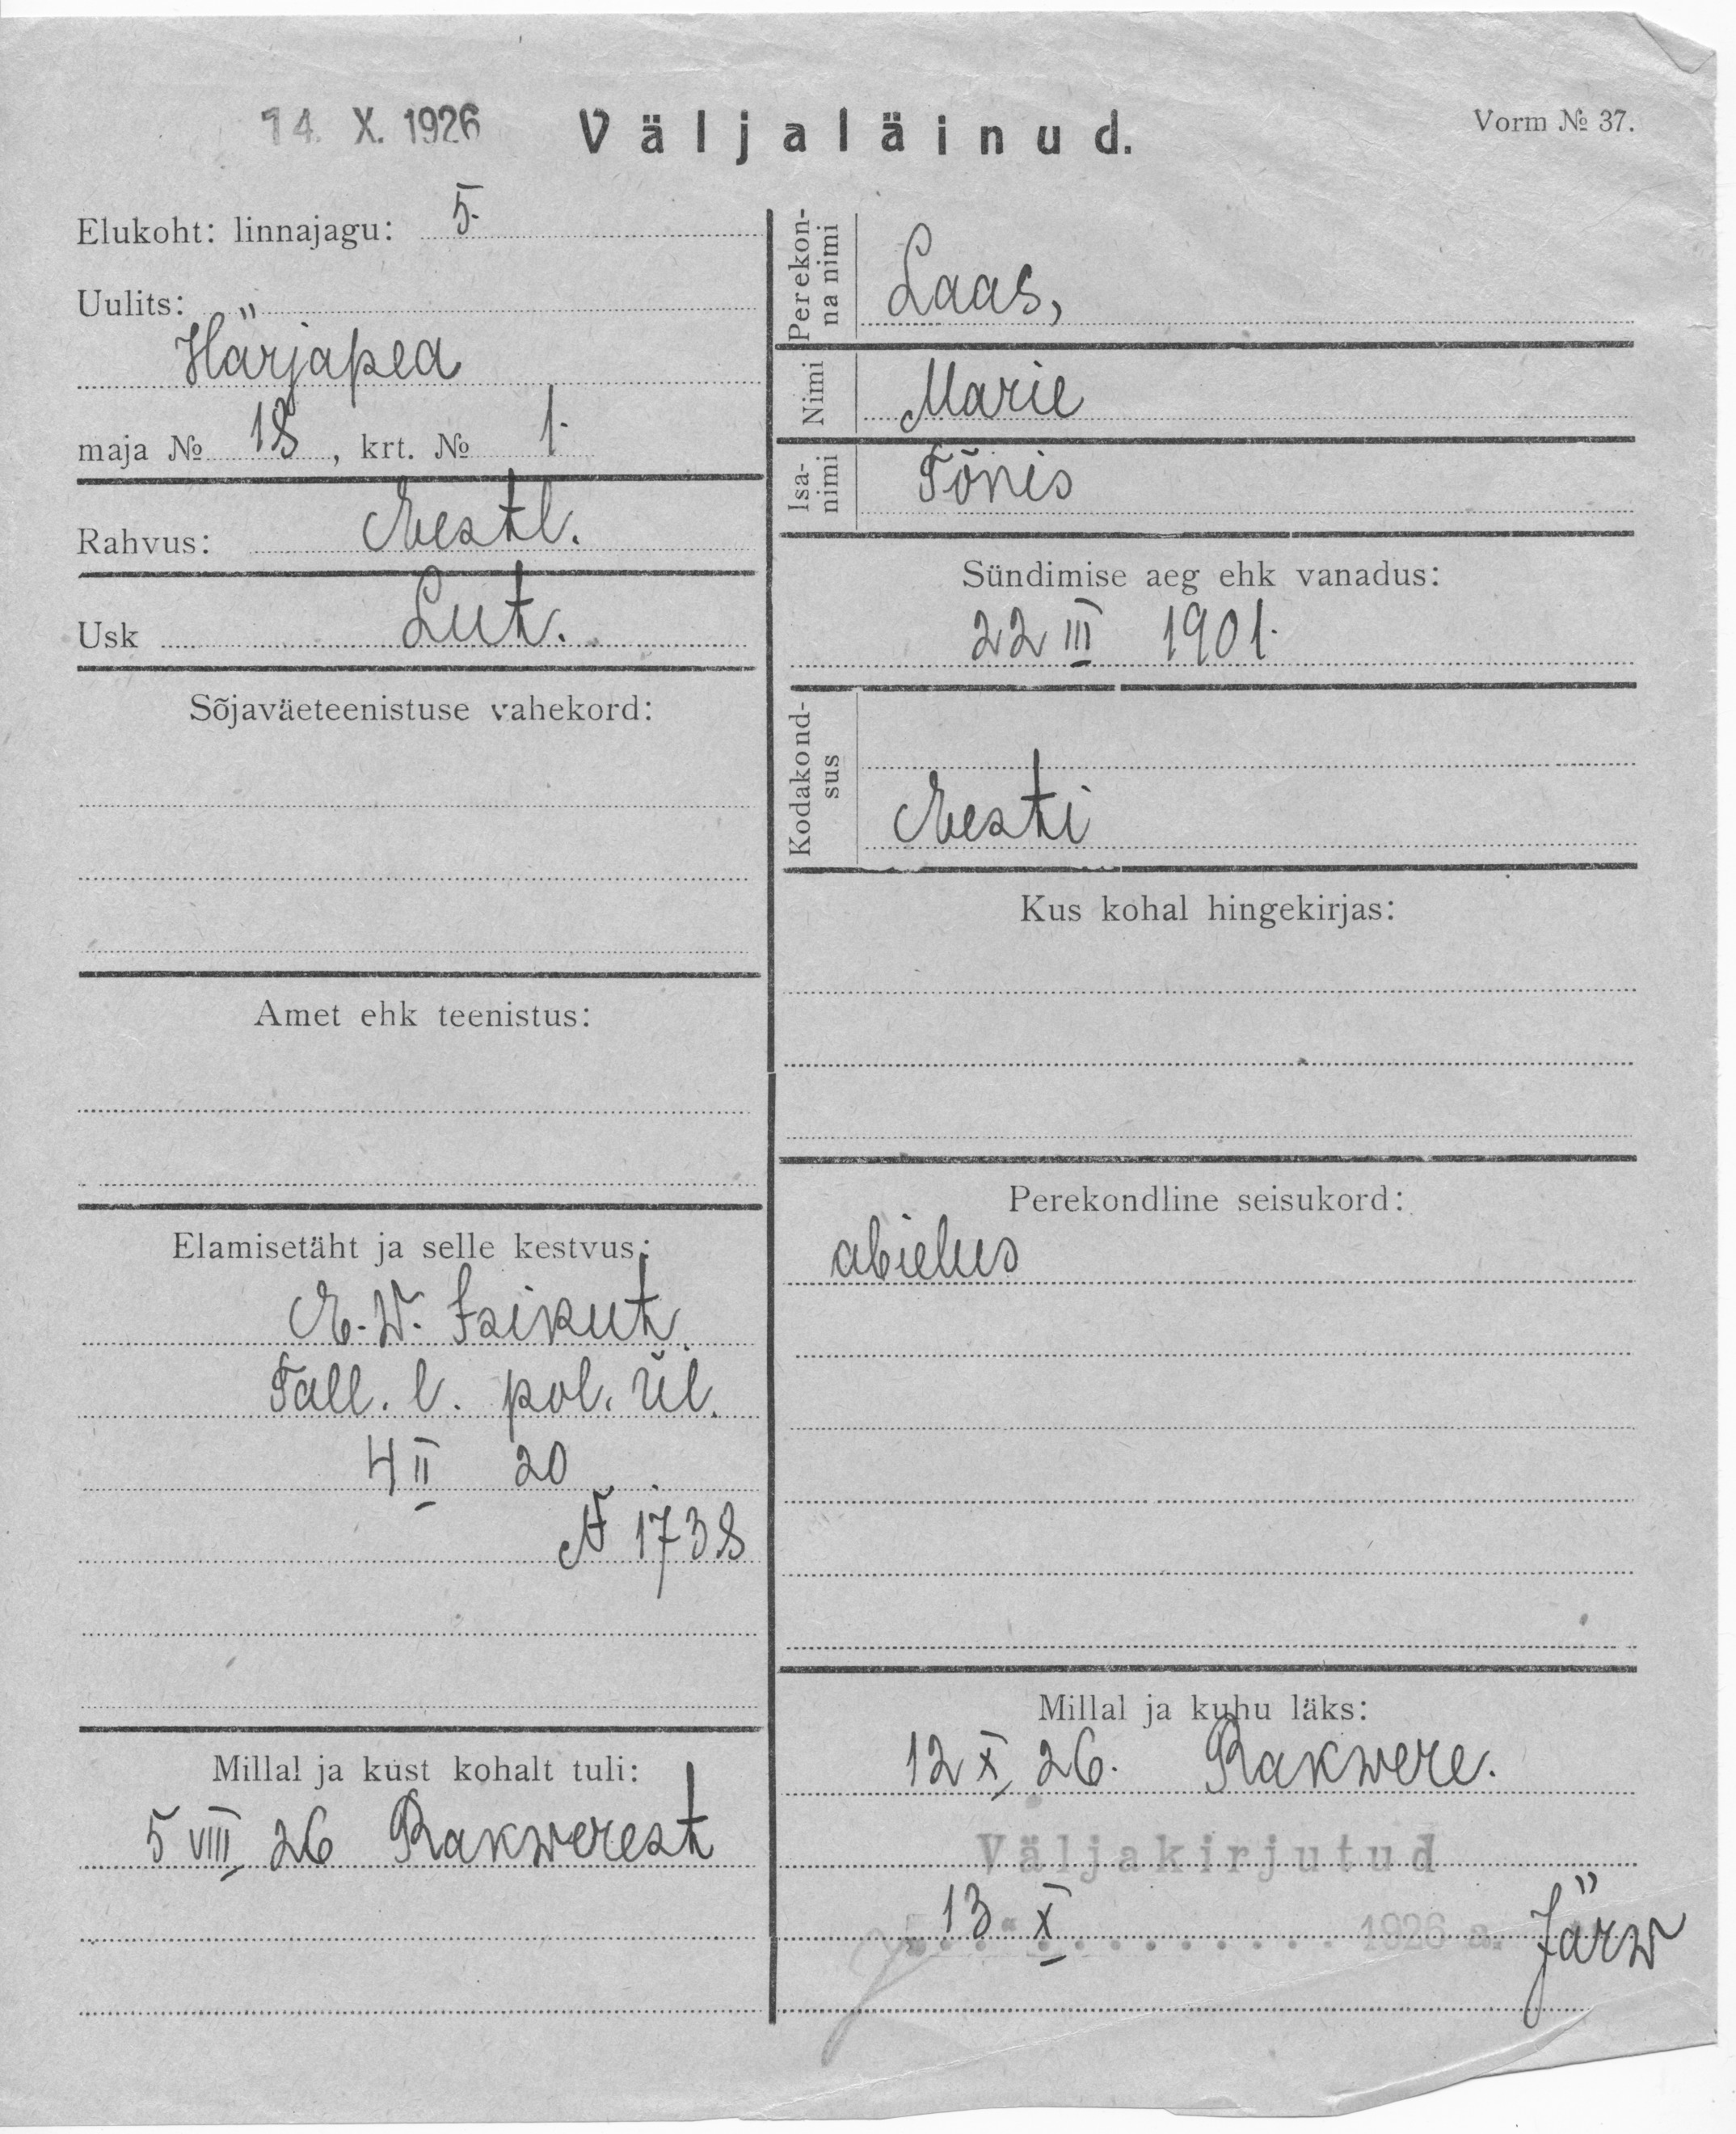 14. X. 1926 Väljaläinud. Vorm № 37.
Elukoht: linnajagu: 5.
Uulits:
Härjapea
maja № 18, krt. № 1.
Rahvus: Eestl.
Usk Lut.
Sõjaväeteenistuse vahekord:
Amet ehk teenistus:
Elamisetäht ja selle kestvus:
E. W. Isikut.
Tall. l. pol. ül.
4 II 20
№ 1738
Millal ja kust kohalt tuli:
5 VIII 26 Rakwerest
Perekon-
na nimi
Laas,
Nimi Marie
Isa-
nimi
Tõnis
Sündimise aeg ehk vanadus:
22 III 1901.
Kodakond-
sus
Eesti
Kus kohal hingekirjas:
Perekondline seisukord:
abielus
Millal ja kuhu läks:
12 X 26. Rakwere.
Väljakirjutud
13 X 1926 a. Järw